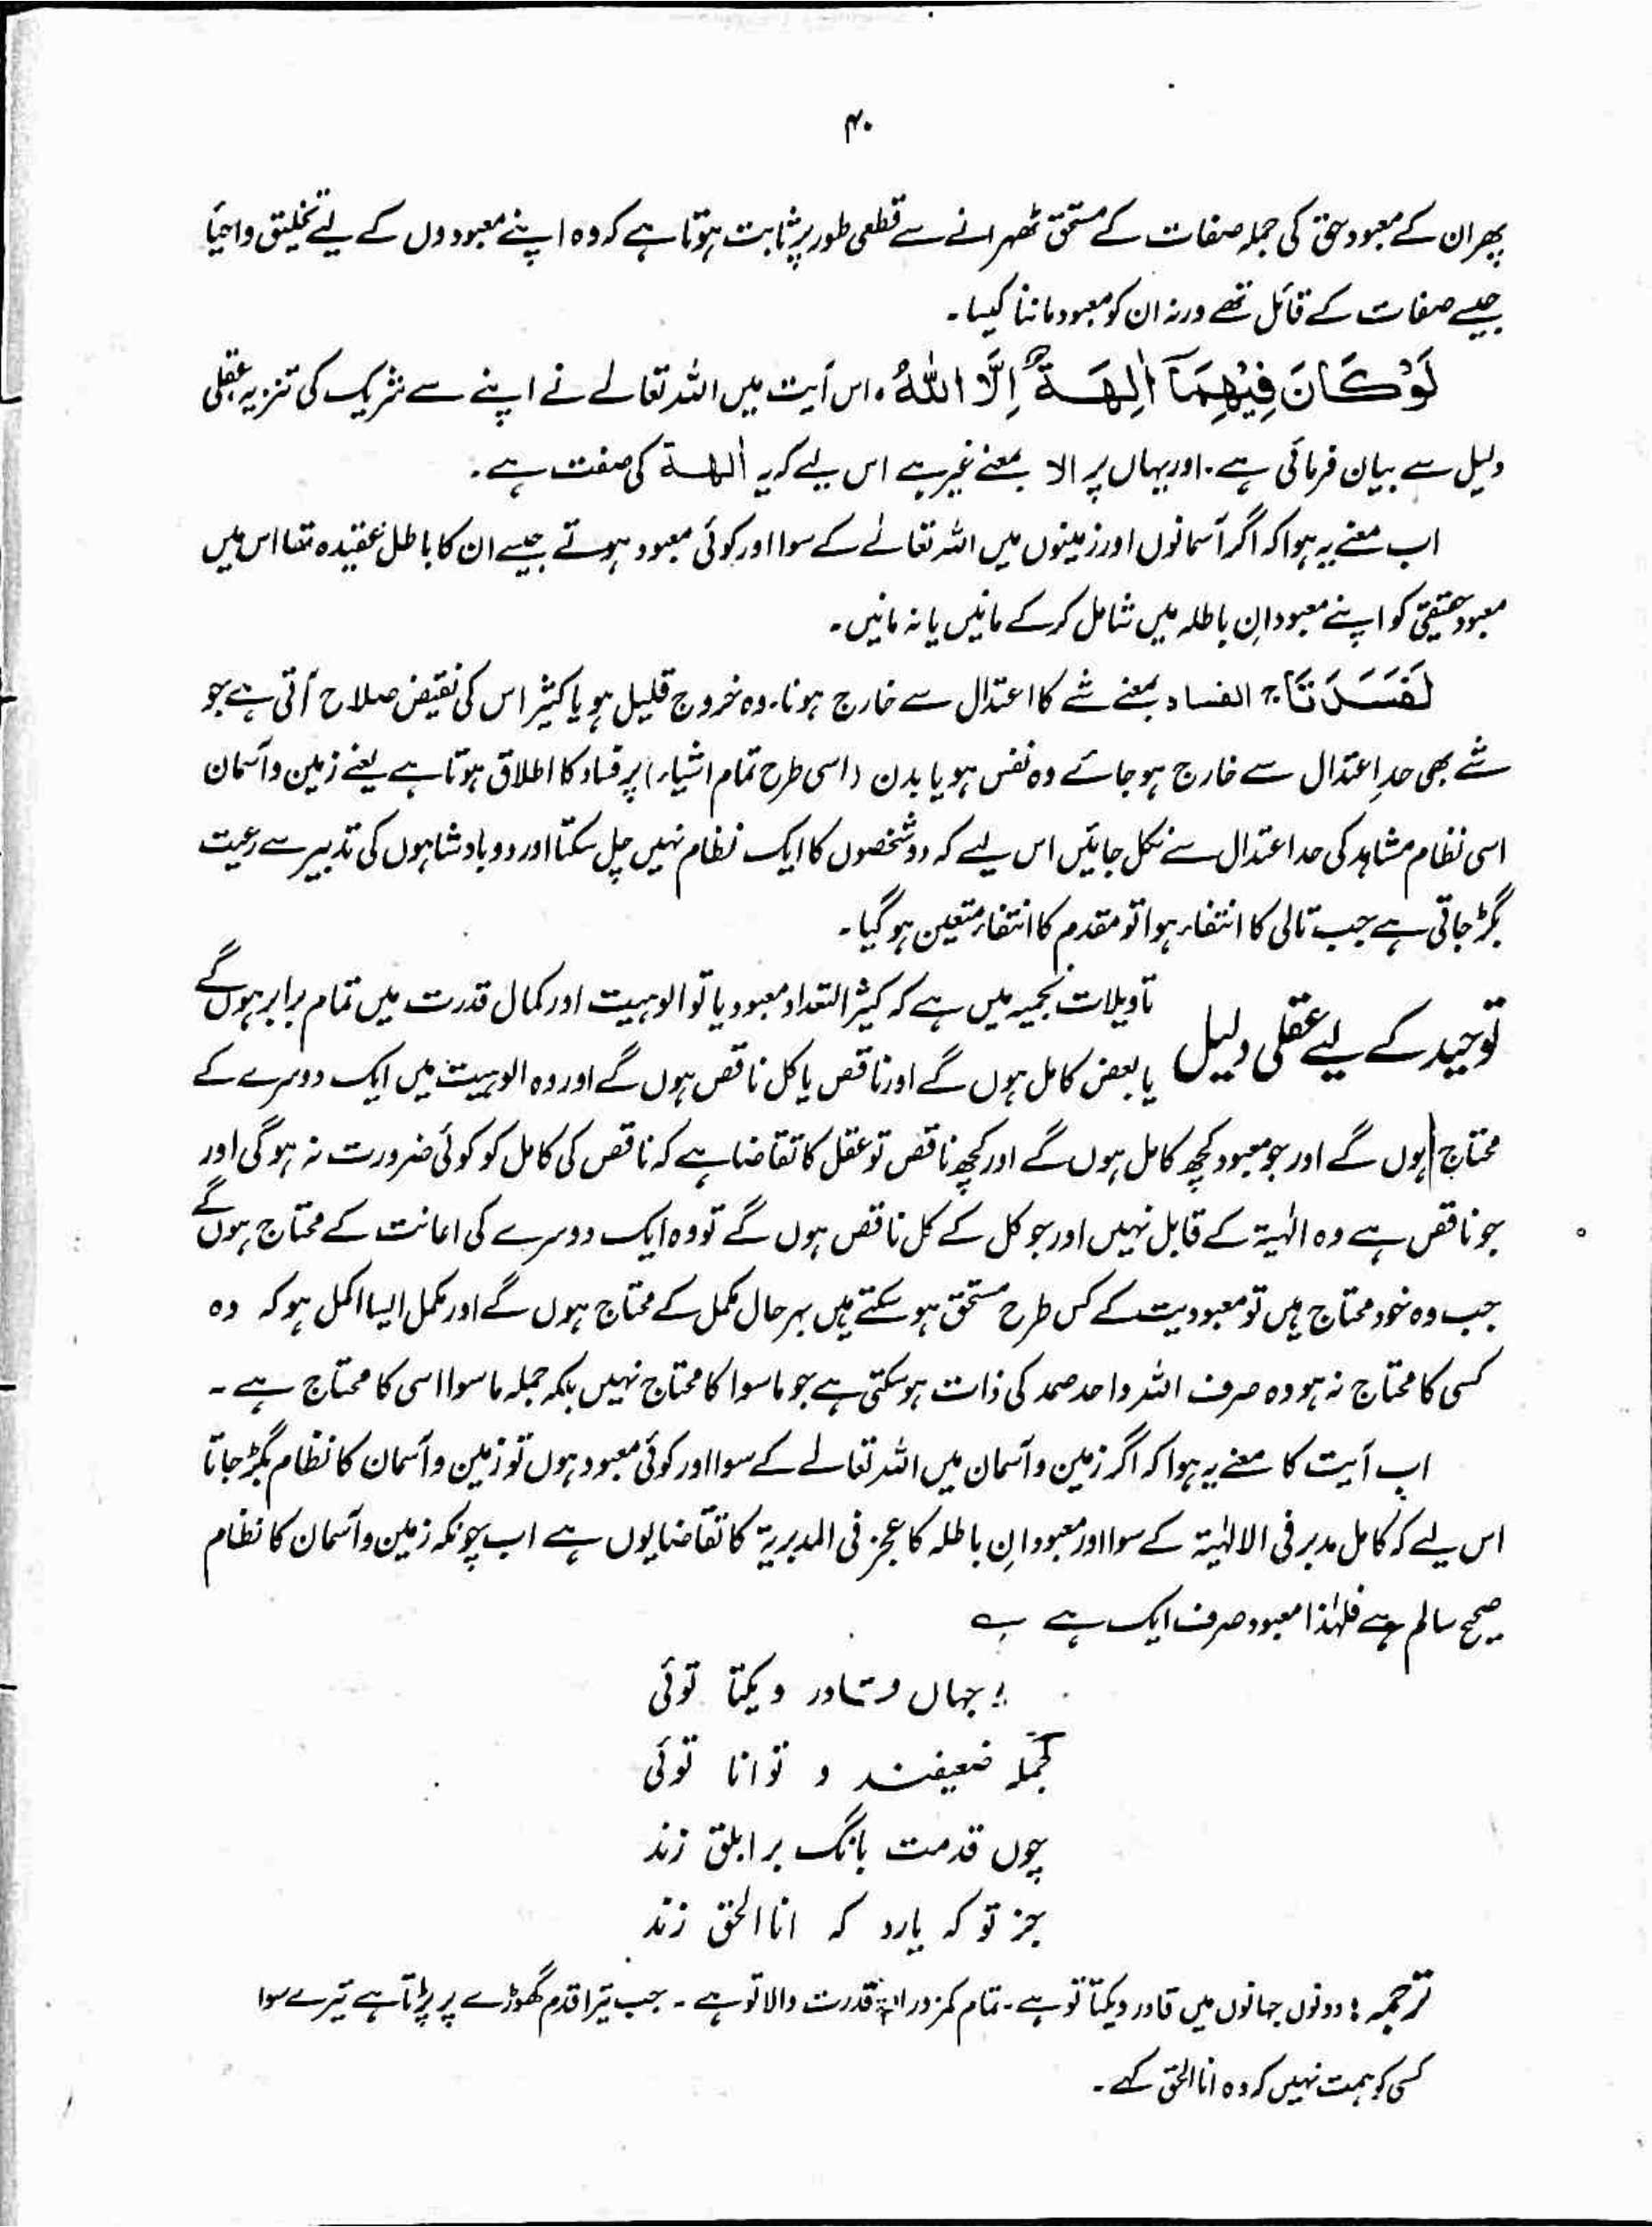 ۴۰
پھر ان کے معبود حق کی جملہ صفات کے مستحق ٹھہرانے سے قطعی طور پر ثابت ہوتا ہے کہ وہ اپنے معبودوں کے لیے تخلیق و احیا
جیسے صفات کے قائل تھے ورنہ ان کو معبود ماننا کیسا۔
لَوْ کَانَ فِیْهِمَآ اٰلِهَةٌ اِلَّا اللّٰهُ، اس آیت میں اللہ تعالےٰ نے اپنے سے شریک کی تنزیہ عقلی
دلیل سے بیان فرمائی ہے۔ اور یہاں پر الا بمعنے غیر ہے اس لیے کہ یہ اٰلھۃ کی صفت ہے۔
اب معنے یہ ہوا کہ اگر آسمانوں اور زمینوں میں اللہ تعالےٰ کے سوا اور کوئی معبود ہوتے جیسے ان کا باطل عقیدہ تھا اس میں
معبود حقیقی کو اپنے معبودانِ باطلہ میں شامل کرکے مانیں یا نہ مانیں۔
لَفَسَدَتَا ج الفساد بمعنے شے کا اعتدال سے خارج ہونا۔ وہ خروج قلیل ہو یا کثیر اس کی نقیض صلاح آتی ہے جو
شے بھی حدِ اعتدال سے خارج ہو جائے وہ نفس ہو یا بدن (اسی طرح تمام اشیاء) پر فساد کا اطلاق ہوتا ہے یعنے زمین و آسمان
اسی نظام مشاہد کی حد اعتدال سے نکل جائیں اس لیے کہ دو شخصوں کا ایک نظام نہیں چل سکتا اور دو بادشاہوں کی تدبیر سے رعیت
بگڑ جاتی ہے جب تالی کا انتفاء ہوا تو مقدم کا انتفاء متعین ہوگیا۔
توحید کے لیے عقلی دلیل تاویلات نجمیہ میں ہے کہ کثیر التعداد معبود یا تو الوہیت اور کمال قدرت میں تمام برابر ہوں گے
یا بعض کامل ہوں گے اور ناقص یا کل ناقص ہوں گے اور وہ الوہیت میں ایک دوسرے کے
محتاج ہوں گے اور جو معبود کچھ کامل ہوں گے اور کچھ ناقص تو عقل کا تقاضا ہے کہ ناقص کی کامل کو کوئی ضرورت نہ ہوگی اور
جو ناقص ہے وہ الٰہیۃ کے قابل نہیں اور جو کل کے کل ناقص ہوں گے تو وہ ایک دوسرے کی اعانت کے محتاج ہوں گے
جب وہ خود محتاج ہیں تو معبودیت کے کس طرح مستحق ہو سکتے ہیں بہر حال مکمل کے محتاج ہوں گے اور مکمل ایسا اکمل ہو کہ وہ
کسی کا محتاج نہ ہو وہ صرف اللہ واحد صمد کی ذات ہوسکتی ہے جو ماسوا کا محتاج نہیں بلکہ جملہ ماسوا اسی کا محتاج ہے۔
اب آیت کا معنے یہ ہوا کہ اگر زمین و آسمان میں اللہ تعالےٰ کے سوا اور کوئی معبود ہوں تو زمین و آسمان کا نظام بگڑ جاتا
اس لیے کہ کامل مدبر فی الالٰہیۃ کے سوا اور معبودانِ باطلہ کا عجز فی المدبریۃ کا تقاضا یوں ہے اب چونکہ زمین و آسمان کا نظام
صحیح سالم ہے فلہٰذا معبود صرف ایک ہے ؎
جہاں قادر و یکتا توئی
جملہ ضعیفند و توانا توئی
چوں قدمت بانگ بر ابلق زند
جز تو کہ یارد کہ انا الحق زند
ترجمہ: دونوں جہانوں میں قادر ویکتا تو ہے۔ تمام کمزور اور قدرت والا تو ہے۔ جب تیرا قدم گھوڑے پر پڑتا ہے تیرے سوا
کسی کو ہمت نہیں کہ وہ انا الحق کہے۔